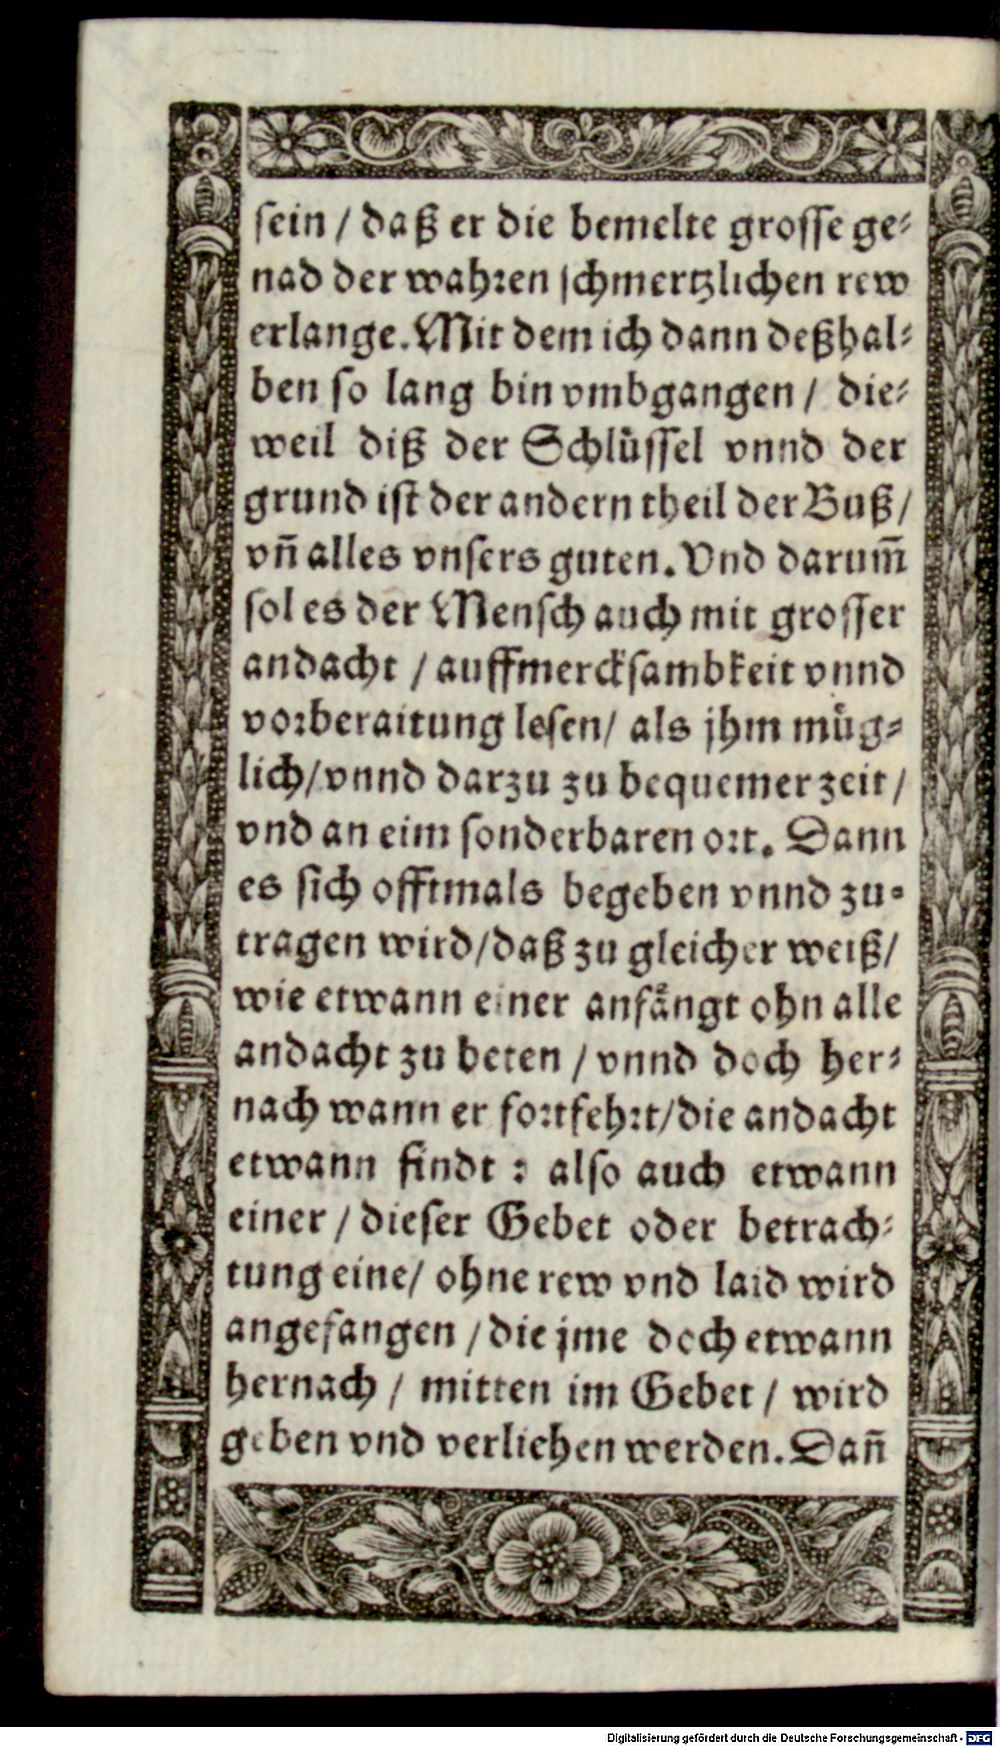 sein / daß er die bemelte grosse ge-
nad der wahren schmertzlichen rew
erlange. Mit dem ich dann deßhal-
ben so lang bin vmbgangen / die-
weil diß der Schlüssel vnnd der
grund ist der andern theil der Buß /
vn̄ alles vnsers guten. Vnd darum̄
sol es der Mensch auch mit grosser
andacht / auffmercksambkeit vnnd
vorberaitung lesen / als jhm müg-
lich / vnnd darzu zu bequemer zeit /
vnd an eim sonderbaren ort. Dann
es sich offtmals begeben vnnd zu-
tragen wird / daß zu gleicher weiß /
wie etwann einer anfängt ohn alle
andacht zu beten / vnnd doch her-
nach wann er fortfehrt / die andacht
etwann findt : also auch etwann
einer / dieser Gebet oder betrach-
tung eine / ohne rew vnd laid wird
angefangen / die jme doch etwann
hernach / mitten im Gebet / wird
geben vnd verliehen werden. Dan̄
Digitalisierung gefördert durch die Deutsche Forschungsgemeinschaft - DFG